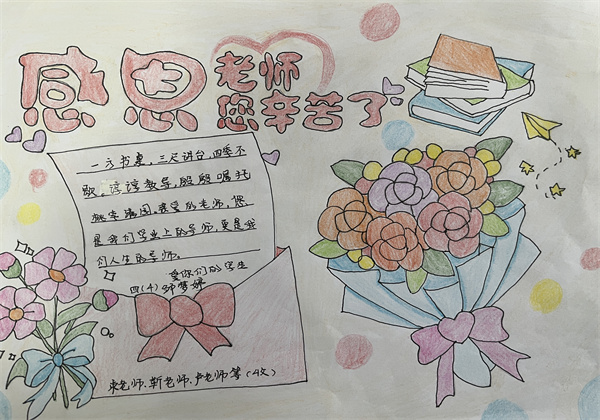 感恩
老师
您辛苦了
一方书桌，三尺讲台，四季不
歇。谆谆教导，殷殷嘱托
桃李满园。亲爱的老师，您
是我们学业上的导师，更是我
们人生的导师。
爱你们的学生
四(4)
老师、靳老师、卢老师等(4文)